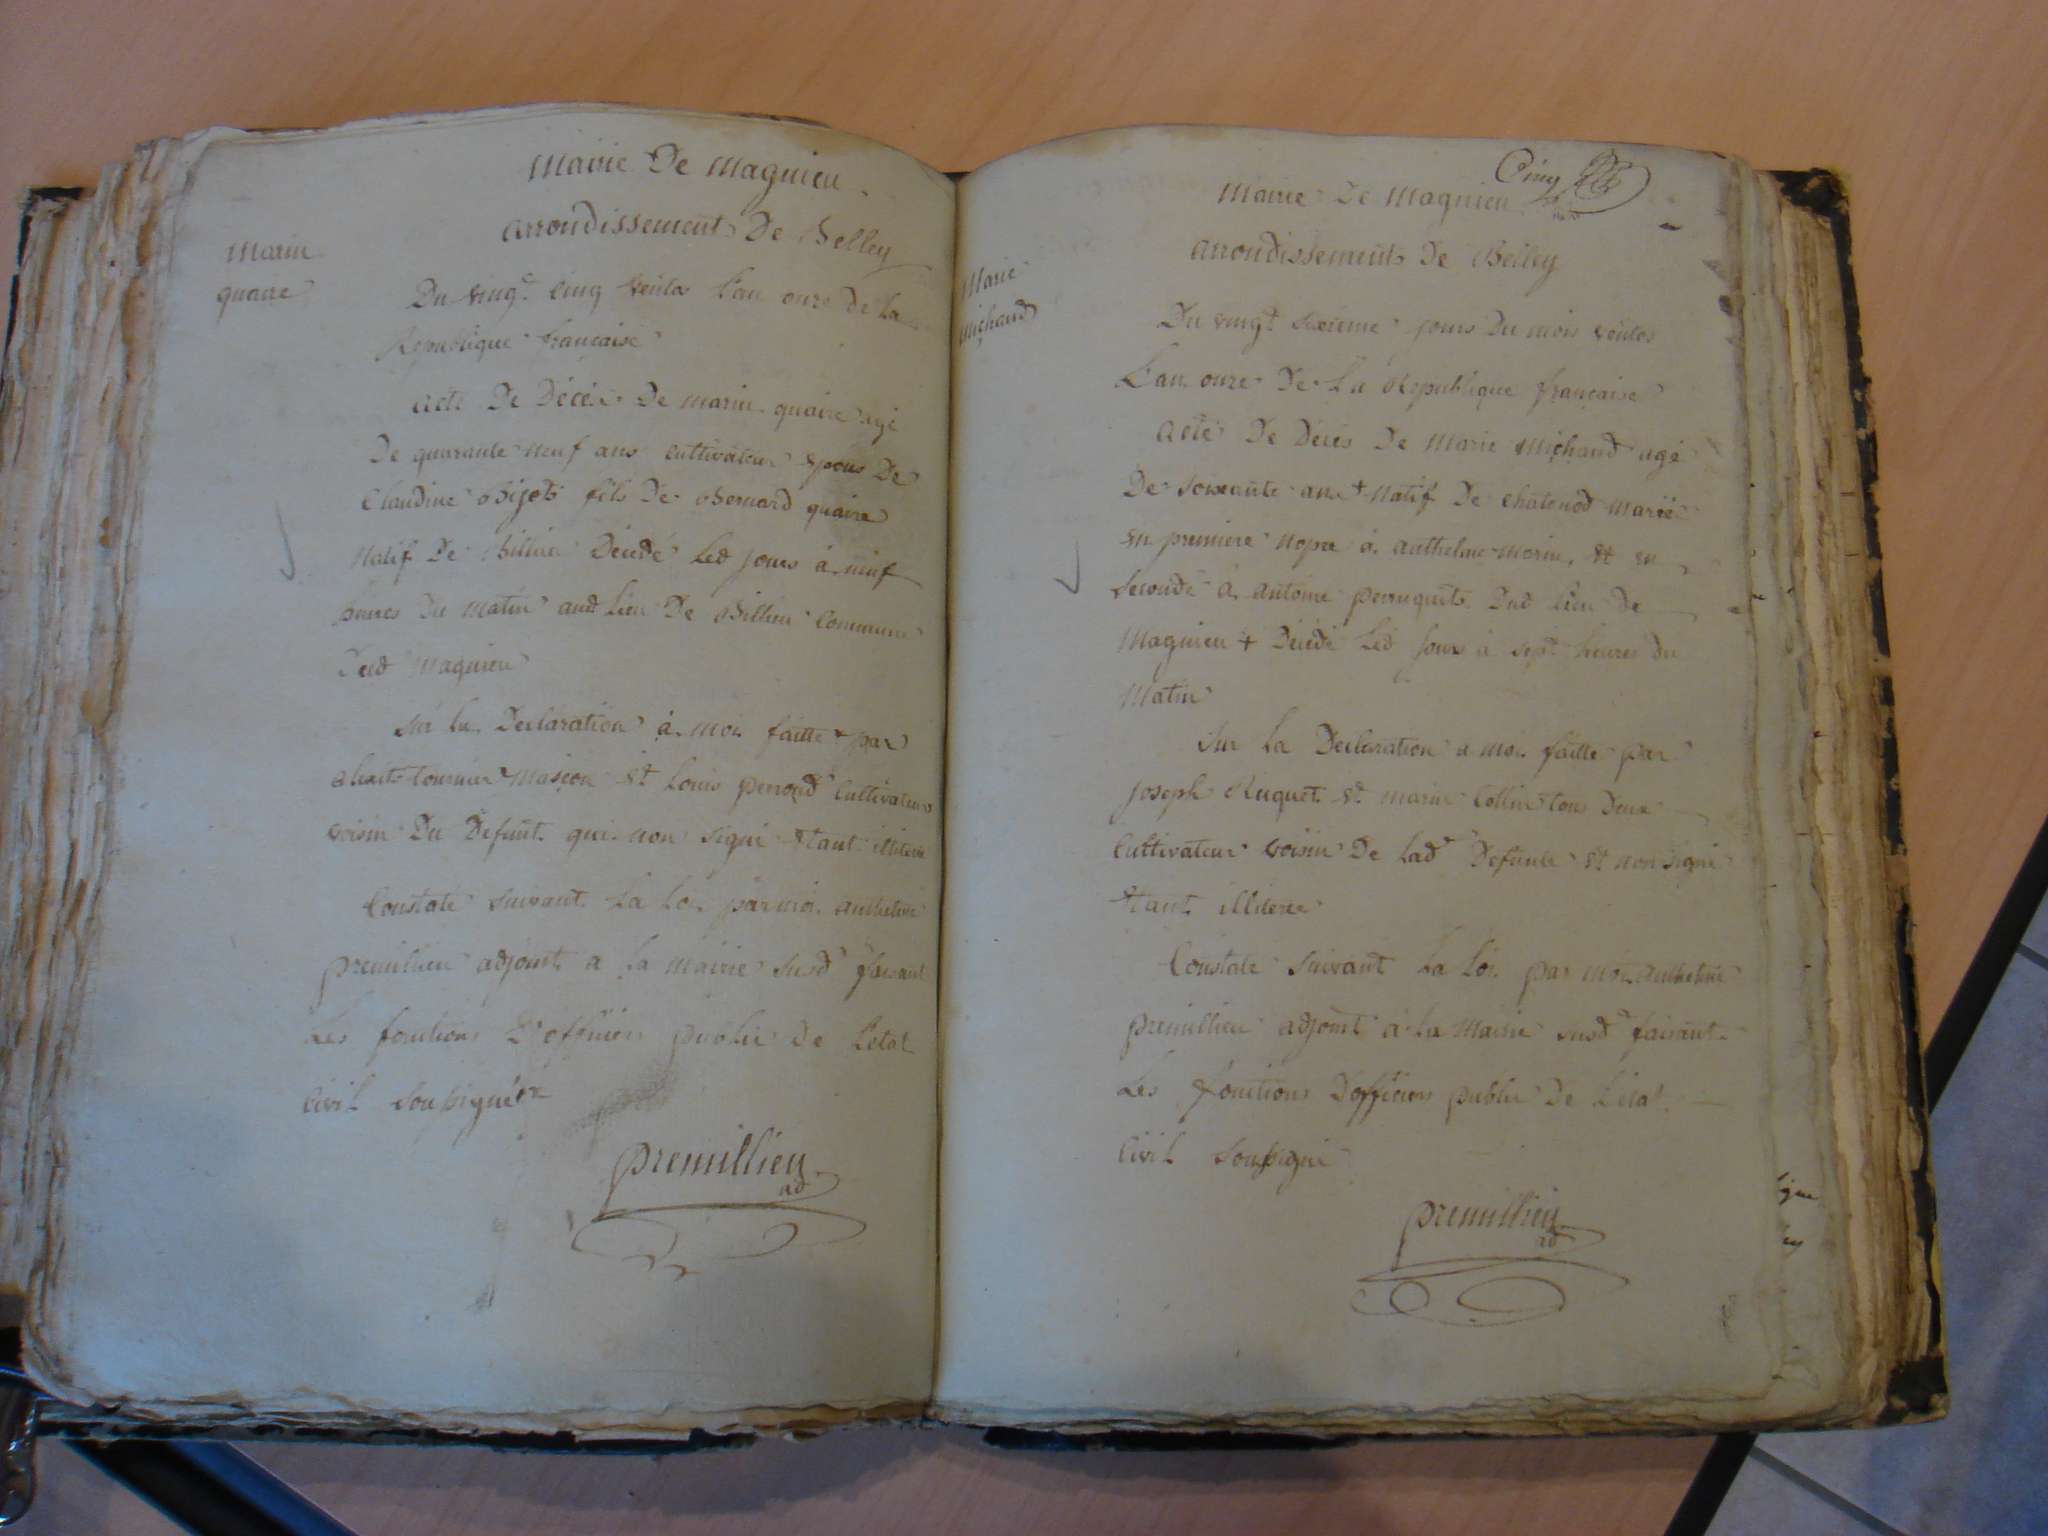 Mairie De Magnieu
arrondissement De Belley
Marin
quaire
Du vingt Cinq ventos L'an onze de La
Republique française
acte De Décés De marin quaire agé
De quarante neuf ans cultivateur Epous De
Claudine Bijot fils De Bernard quaire
Natif De Billieu Décédé Led jours à neuf
heures Du matin aud Lieu De Billieu Commune
Dud Magnieu
Sur La Declaration à moi faitte par
tournier Masçon Et Louis perroud Cultivateurs
voisin Du Defunt qui non signé Etant illiteré
Constaté suivant La Loi par moi anthelme
premillieu adjoint a La mairie susd faisant
Les fonctions D'officiers public De L'état
Civil soussigné
premillieu
ad
Cinq
Mairie De Magnieu
arrondissement De Belley
Marie
Michaud
Du vingt sixieme jours Du mois ventos
L'an onze De La Republique française
acte De Décés De Marie Michaud agé
De soixante ans + Natif De chatonod Mariée
En premiere Nopce à anthelme morin, Et en
seconde à antoine perruquet Dud Lieu De
Magnieu + Décédé Led jours à sept heures Du
Matin
Sur La Declaration a moi faitte par
joseph Ruquet Et marin Collin tous Deux
Cultivateur voisin De Lad Defunte Et non signé
Etant illiteré
Constaté suivant La Loi par moi anthelme
premillieu adjoint à La Mairie susd faisant
Les fonctions D'officiers public De L'état
Civil soussigné
premillieu
ad